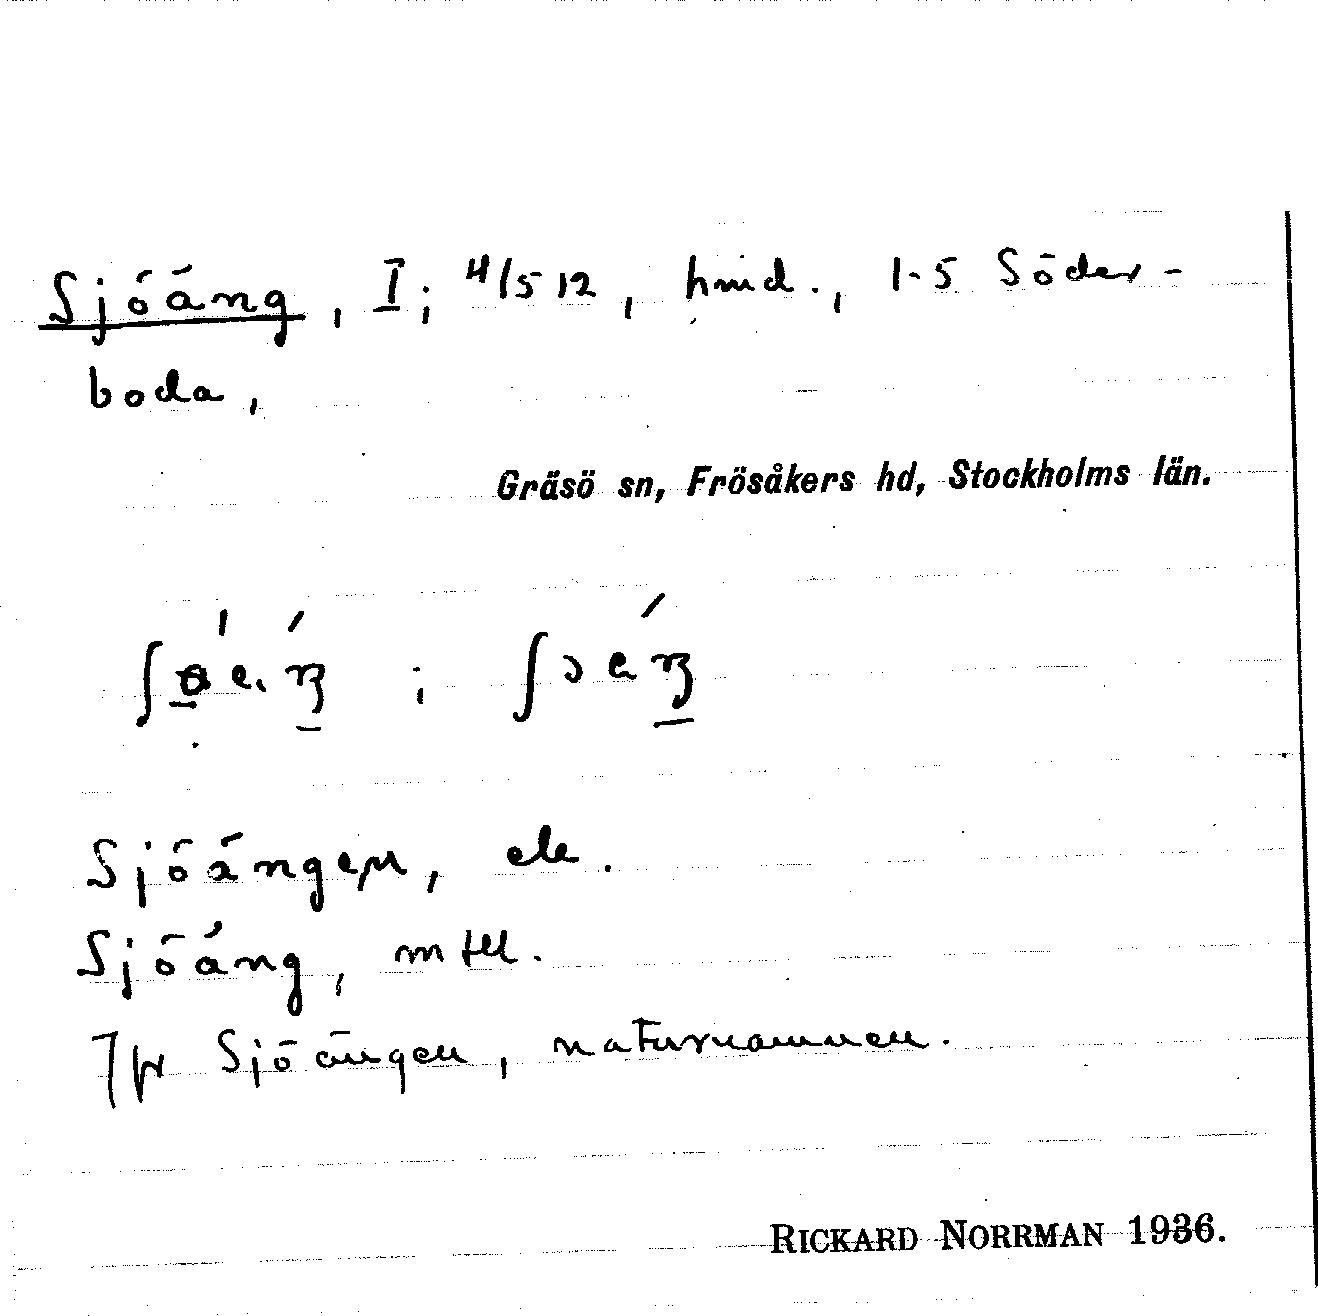 Sjöäng, I; 4/5 12, hmd., 1-5 Söder-
boda,
Gräsö sn, Frösåkers hd, Stockholms län.
Sjöängen, ek.
Sjöäng, mtll.
Jfr Sjöängen, naturnamnen.
RICKARD NORRMAN 1936.